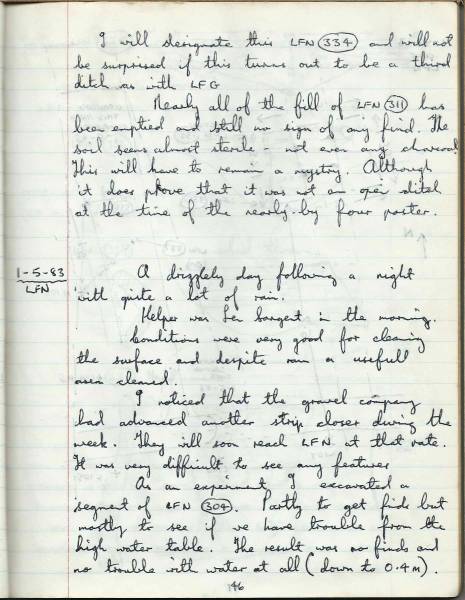 I will designate this LFN 334 and will not
be surprised if this turns out to be a third
ditch as with LFG
Nearly all of the fill of LFN 311 has
been emptied and still no sign of any find. The
soil seems almost sterile - not even any charcoal
This will have to remain a mystry. Although
it does prove that it was not an open ditch
at the time of the nearby-by four poster.
1-5-83
LFN
A drizzlely day following a night
with quite a lot of rain.
Helper was Len Sargent in the morning.
Conditions were very good for cleaning
the surface and despite rain a usefull
area cleaned.
I noticed that the gravel company
had advanced another strip closer during the
week. They will soon reach LFN at that rate.
It was very difficult to see any features
As an experiment I excavated a
segment of LFN 304. Partly to get finds but
mostly to see if we have trouble from the
high water table. The result was no finds and
no trouble with water at all (down to 0.4m).
46